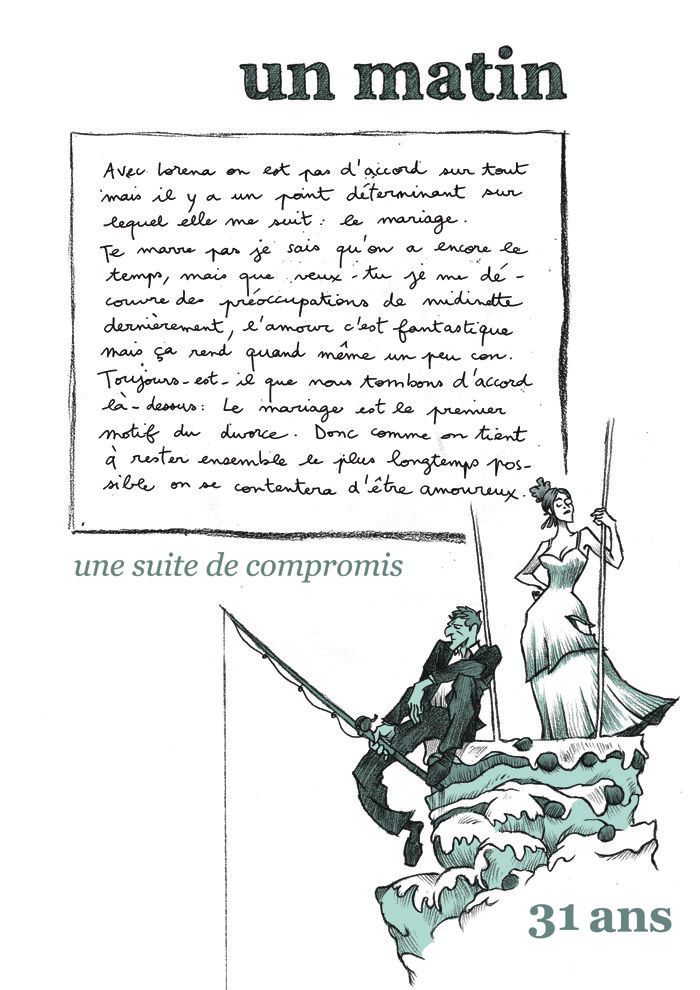 un matin
Avec Lorena on est pas d'accord sur tout
mais il y a un point déterminant sur
lequel elle me suit : le mariage.
Te marre pas je sais qu'on a encore le
temps, mais que veux-tu je me dé-
couvre des préoccupations de midinette
dernièrement, l'amour c'est fantastique
mais ça rend quand même un peu con.
Toujours-est-il que nous tombons d'accord
là-dessus : Le mariage est le premier
motif du divorce. Donc comme on tient
à rester ensemble le plus longtemps pos-
sible on se contentera d'être amoureux.
une suite de compromis
31 ans